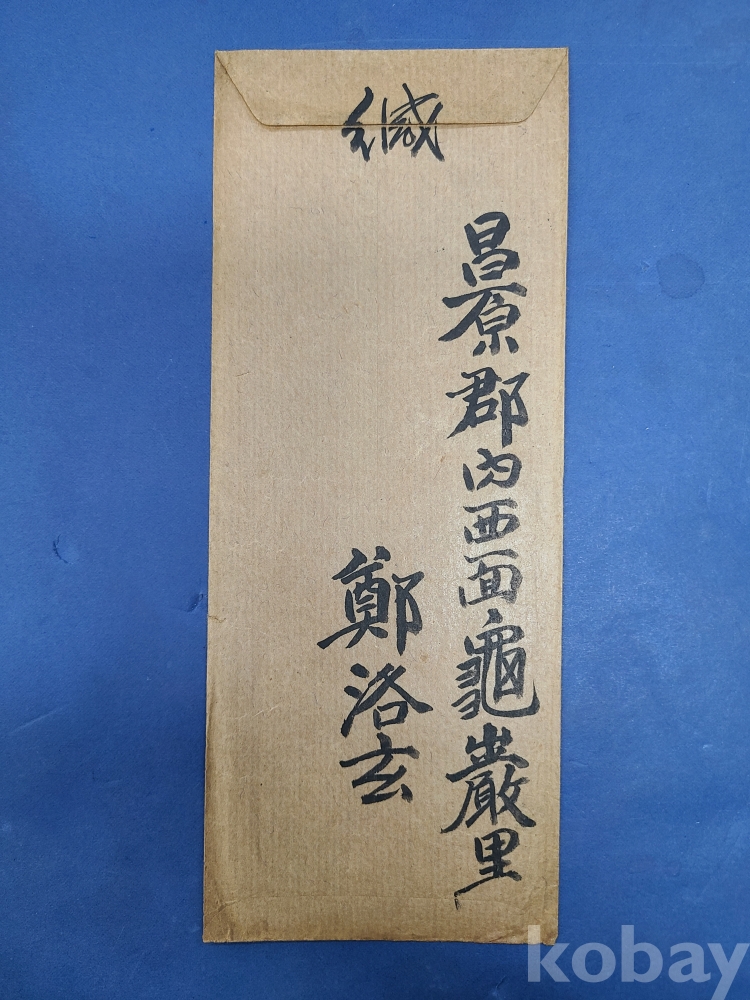 緘
昌原郡內西面龜巖里
鄭洛玄
kobay